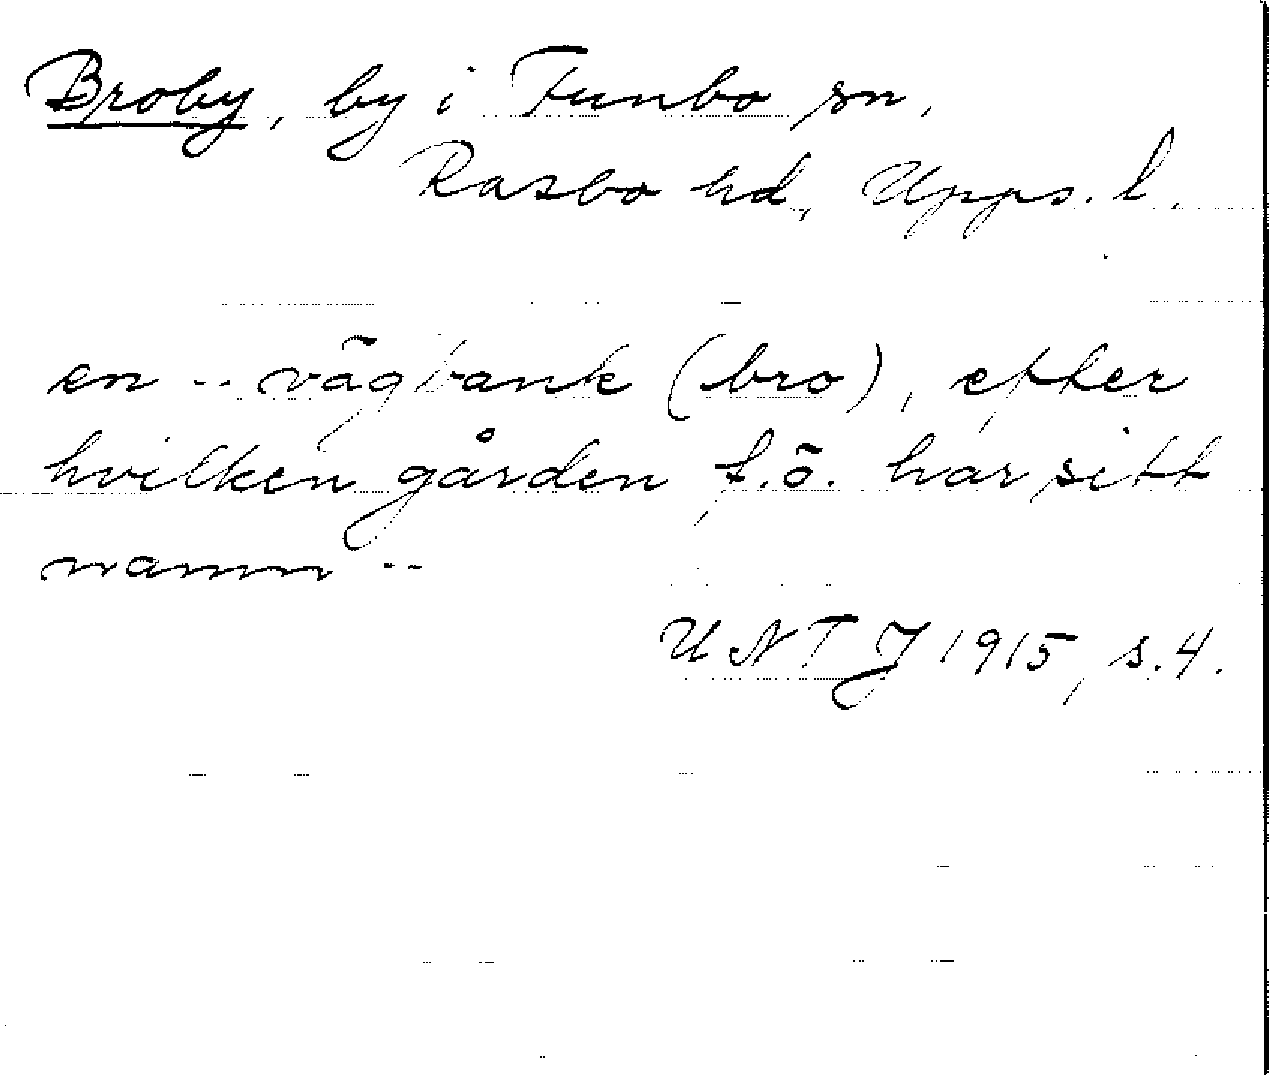 Broby, by i Funbo sn,
Rasbo hd, Upps. l.
en -- vägbank (bro), efter
hvilken gården f.ö. har sitt
namn --
UNTJ 1915, s.4.